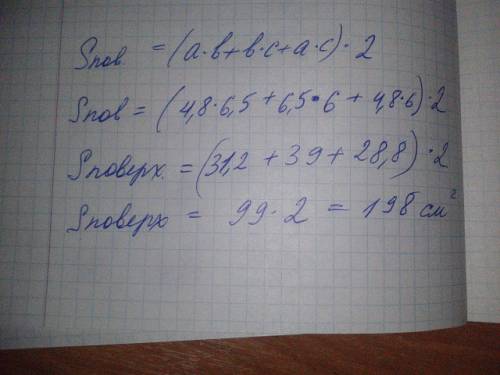 Sпов. = (a·b+b·c+a·c)·2
Sпов = (4,8·6,5+6,5·6+4,8·6)·2
Sповерх. = (31,2+39+28,8)·2
Sповерх = 99·2 = 198 см²